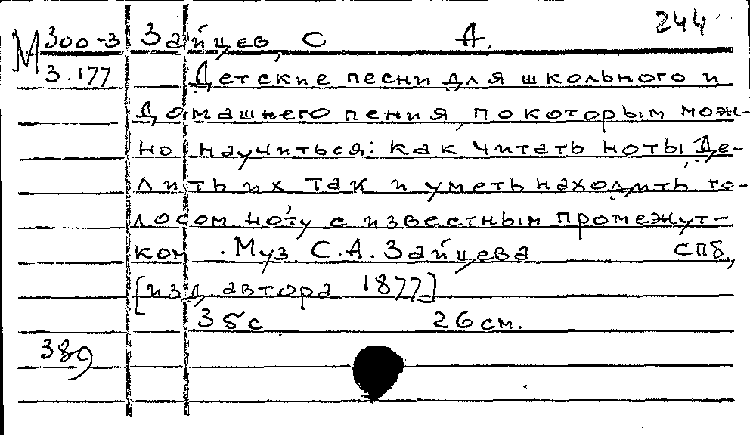 244
М 300-3 Зайцев, С А.
3.177 Детские песни для школьного и
домашнего пения, по которым мож-
но научиться: как читать ноты, де-
лить их так и уметь находить го-
лосом ноту с известным промежут-
ком. Муз. С.А. Зайцева СПб,
[изд. автора 1877]
35с 26см.
389